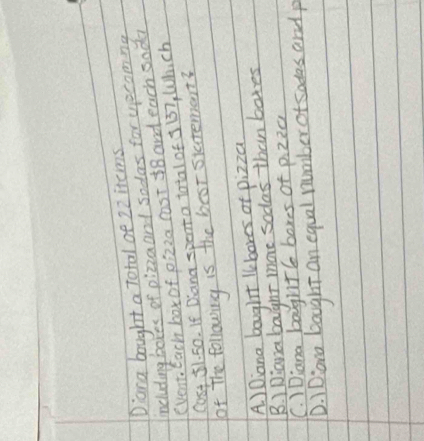 Diana bought a Total of 22 items
including boxes of pizza and sodas for upcoming
event. Each box of pizza cost $8 and each soda
Cost $1.50. If Diana spent a total of $137, Which
of The following is the best statement?
A.) Diana bought 16 boxes of pizza
B.) Diana bought more sodas than boxes
C.) Diana bought 6 boxes of pizza
D.) Diana bought an equal number of sodas and p